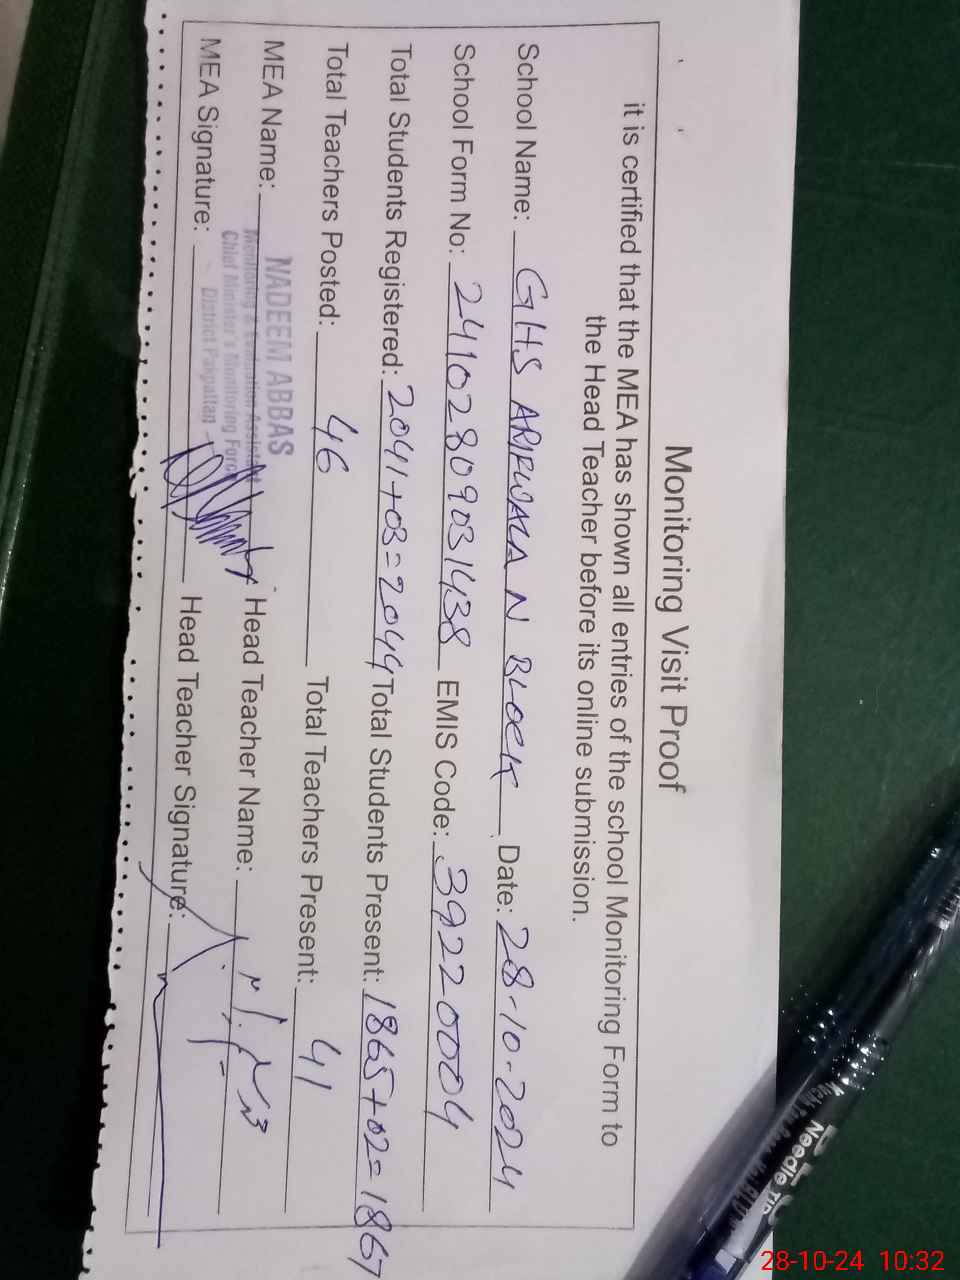 Monitoring Visit Proof
it is certified that the MEA has shown all entries of the school Monitoring Form to
the Head Teacher before its online submission.
School Name: GHS ARIFWALA N BLOCK Date: 28-10-2024
School Form No: 24102809031438 EMIS Code: 39220004
Total Students Registered: 2041+03=2044 Total Students Present: 1865+02=1867
Total Teachers Posted: 46 Total Teachers Present: 41
MEA Name: NADEEM ABBAS Head Teacher Name:
Monitoring & Evaluation Assistant
Chief Minister's Monitoring Force
District Pakpattan
MEA Signature: Head Teacher Signature:
Needle Tip
28-10-24 10:32